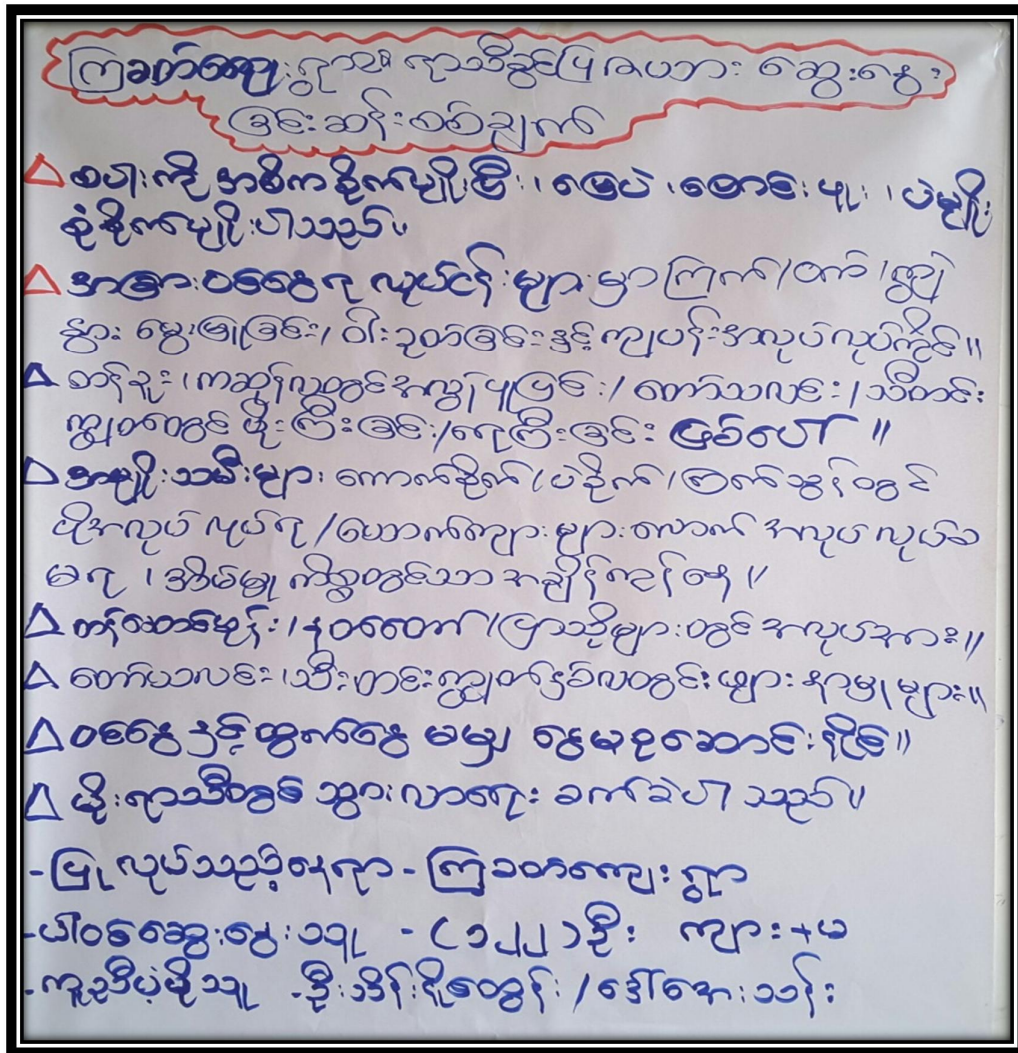 ကြခတ်ကျေးရွာ၏ ရာသီခွင်ပြ ဇယား ဆွေးနွေး
ခြင်းဆန်းစစ်ချက်
စပါးကို အဓိကစိုက်ပျိုးပြီး၊ မြေပဲ၊ ပဲမျိုး
စုံစိုက်ပျိုးပါသည်။
အခြားဝင်ငွေရ လုပ်ငန်းများမှာ ကြက်/ဝက်/ကျွဲ
နွား မွေးမြူခြင်း/ ဝါးခုတ်ခြင်းနှင့် ကျပန်းအလုပ်လုပ်ကိုင်။
တန်ခူး၊ကဆုန်လတွင် အလှူပြုခြင်း/ တော်သလင်း/သီတင်း
ကျွတ်တွင် မိုးကြီးခြင်း/ရေကြီးခြင်း ဖြစ်ပေါ်။
အမျိုးသမီးများ ကောက်စိုက်/ပဲစိုက်/ တွင်
ပိုအလုပ်လုပ်ရ/ယောက်ကျားများလောက် အလုပ်လုပ်စ
မရ၊ အိမ်မှုကိစ္စတွင်သာ အချိန်ကုန်နေ။
တန်ဆောင်မုန်း/နတ်တော်/ပြာသိုများတွင် အလုပ်အား။
တော်သလင်း၊သီးတင်းကျွတ်နှစ်လတွင် ဖျားနာမှုများ။
ဝင်ငွေနှင့်ထွက်ငွေ မမျှ ငွေမစုဆောင်းနိုင်။
မိုးရာသီတွင် သွားလာရေး ခက်ခဲပါသည်။
-ပြုလုပ်သည့်နေရာ - ကြခတ်ကျေးရွာ
-ပါဝင်ဆွေးနွေးသူ - (၁၂၂)ဦး ကျား+မ
-ကူညီပံ့ပိုးသူ -ဦးသိန်းနိုထွန်း / ဒေါ်အေးသန်း